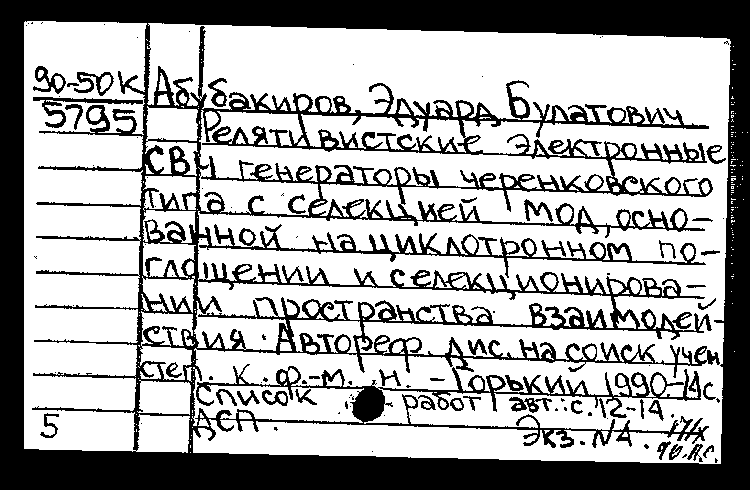 90-50К Абубакиров, Эдуард Булатович
5795 Релятивистские электронные
СВЧ генераторы черенковского
типа с селекцией мод, осно-
ванной на циклотронном по-
глощении и селекционирова-
нии пространства взаимодей-
ствия. Автореф. дис. на соиск. учен.
степ. к. ф.-м. н. - Горький 1990.-14с.
Список работ авт.: с. 12-14.
ДСП. Экз. N4.
5